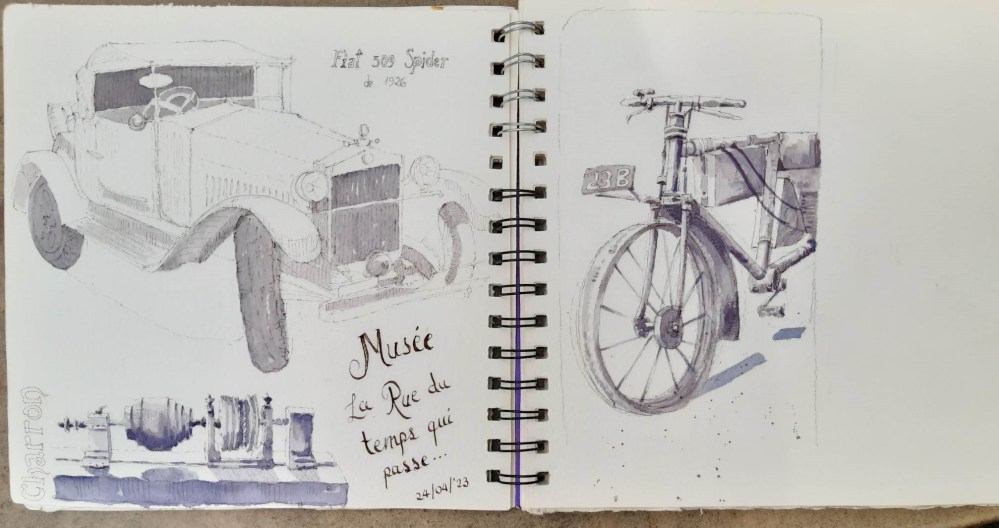 Fiat 509 Spider
de 1926
Musée
La Rue du
temps qui
passe...
24/04/'23
Charron
23B